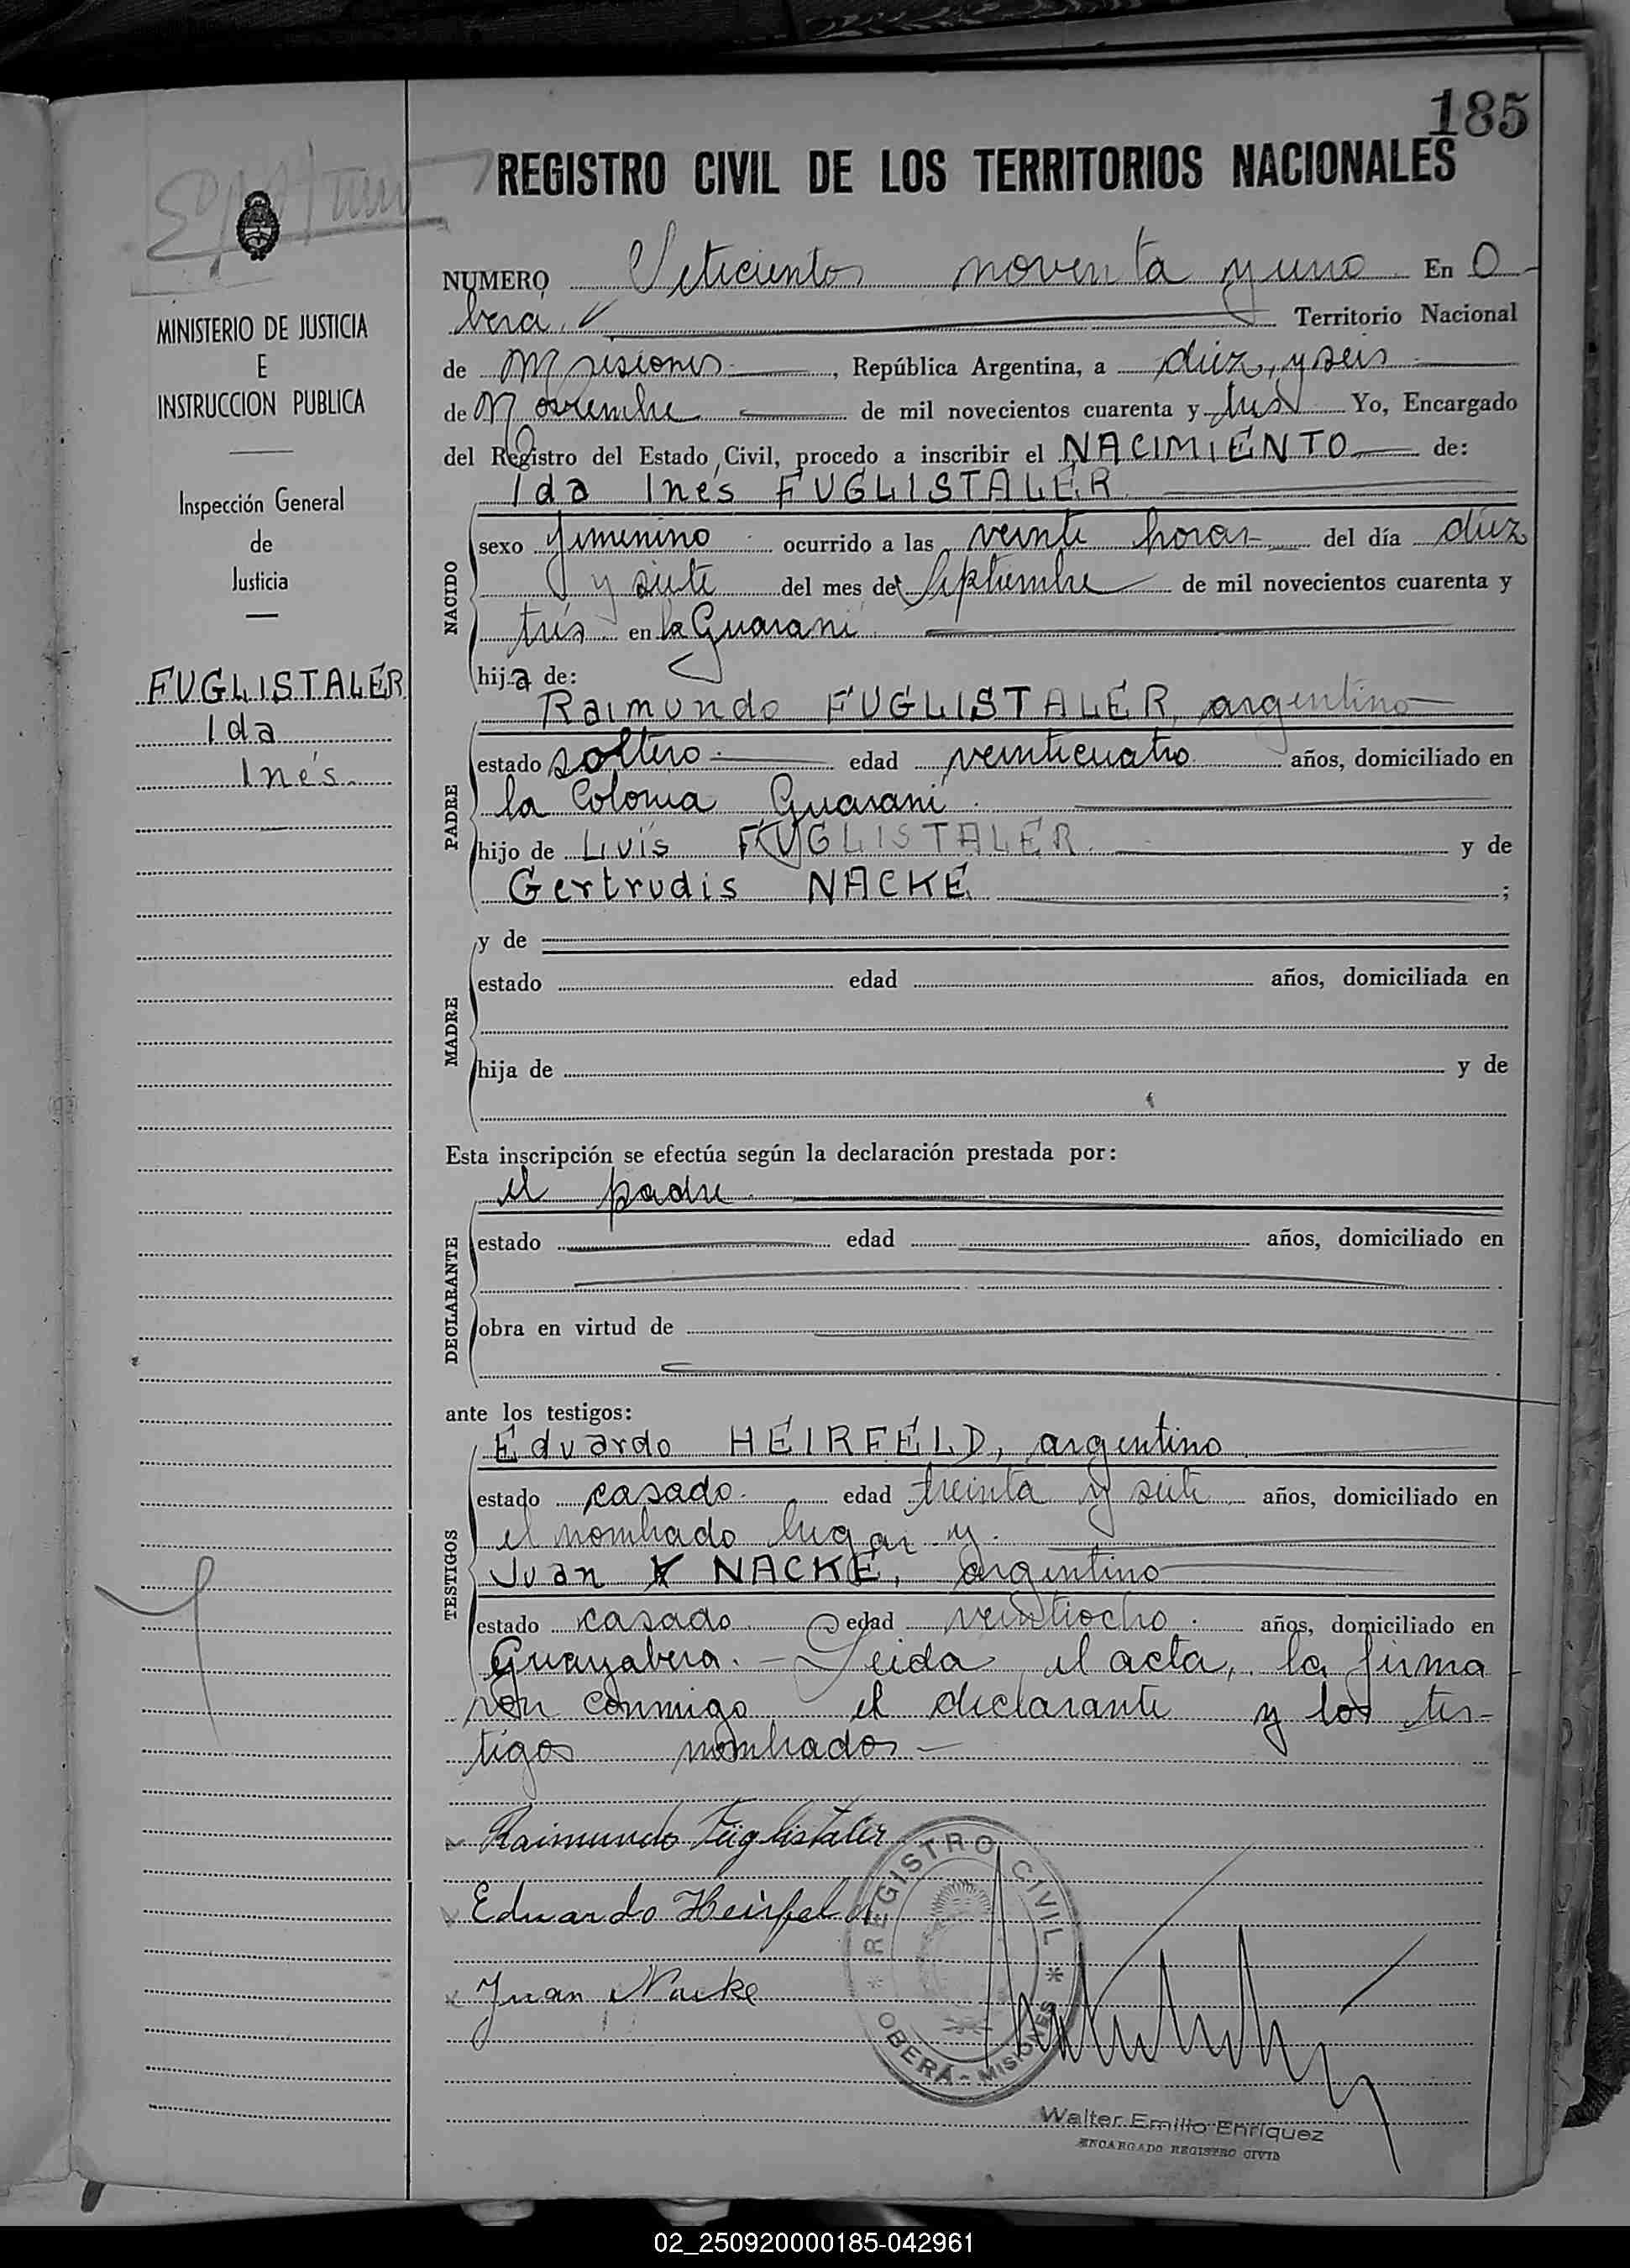 185
REGISTRO CIVIL DE LOS TERRITORIOS NACIONALES
MINISTERIO DE JUSTICIA
E
INSTRUCCION PUBLICA
Inspección General
de
Justicia
FUGLISTALER
Ida
Inés.
NUMERO Seticientos noventa y uno En O-
berá, Territorio Nacional
de Misiones, República Argentina, a diez, y seis
de Noviembre de mil novecientos cuarenta y tres Yo, Encargado
del Registro del Estado Civil, procedo a inscribir el NACIMIENTO de:
Ida Inés FUGLISTALER
NACIDO
sexo femenino ocurrido a las veinte horas del día diez
y siete del mes de Septiembre de mil novecientos cuarenta y
trés en la Guarani
hija de:
PADRE
Raimundo FUGLISTALER, argentino
estado soltero edad veinticuatro años, domiciliado en
la Colonia Guarani
hijo de Luis FUGLISTALER y de
Gertrudis NACKE ;
MADRE
y de
estado edad años, domiciliada en
hija de y de
Esta inscripción se efectúa según la declaración prestada por:
DECLARANTE
el padre
estado edad años, domiciliado en
obra en virtud de
ante los testigos:
TESTIGOS
Eduardo HEIRFELD, argentino
estado casado. edad treinta y siete años, domiciliado en
el nombrado lugar y.
Juan NACKE, argentino
estado casado edad veintiocho. años, domiciliado en
Guayabera. - Leida el acta, la firma-
ron conmigo el declarante y los tes-
tigos nombrados-
Raimundo Füglistaler
Eduardo Heirfeld
Juan Nacke
REGISTRO CIVIL
OBERÁ - MISIONES
Walter Emilio Enriquez
ENCARGADO REGISTRO CIVIL
02_250920000185-042961